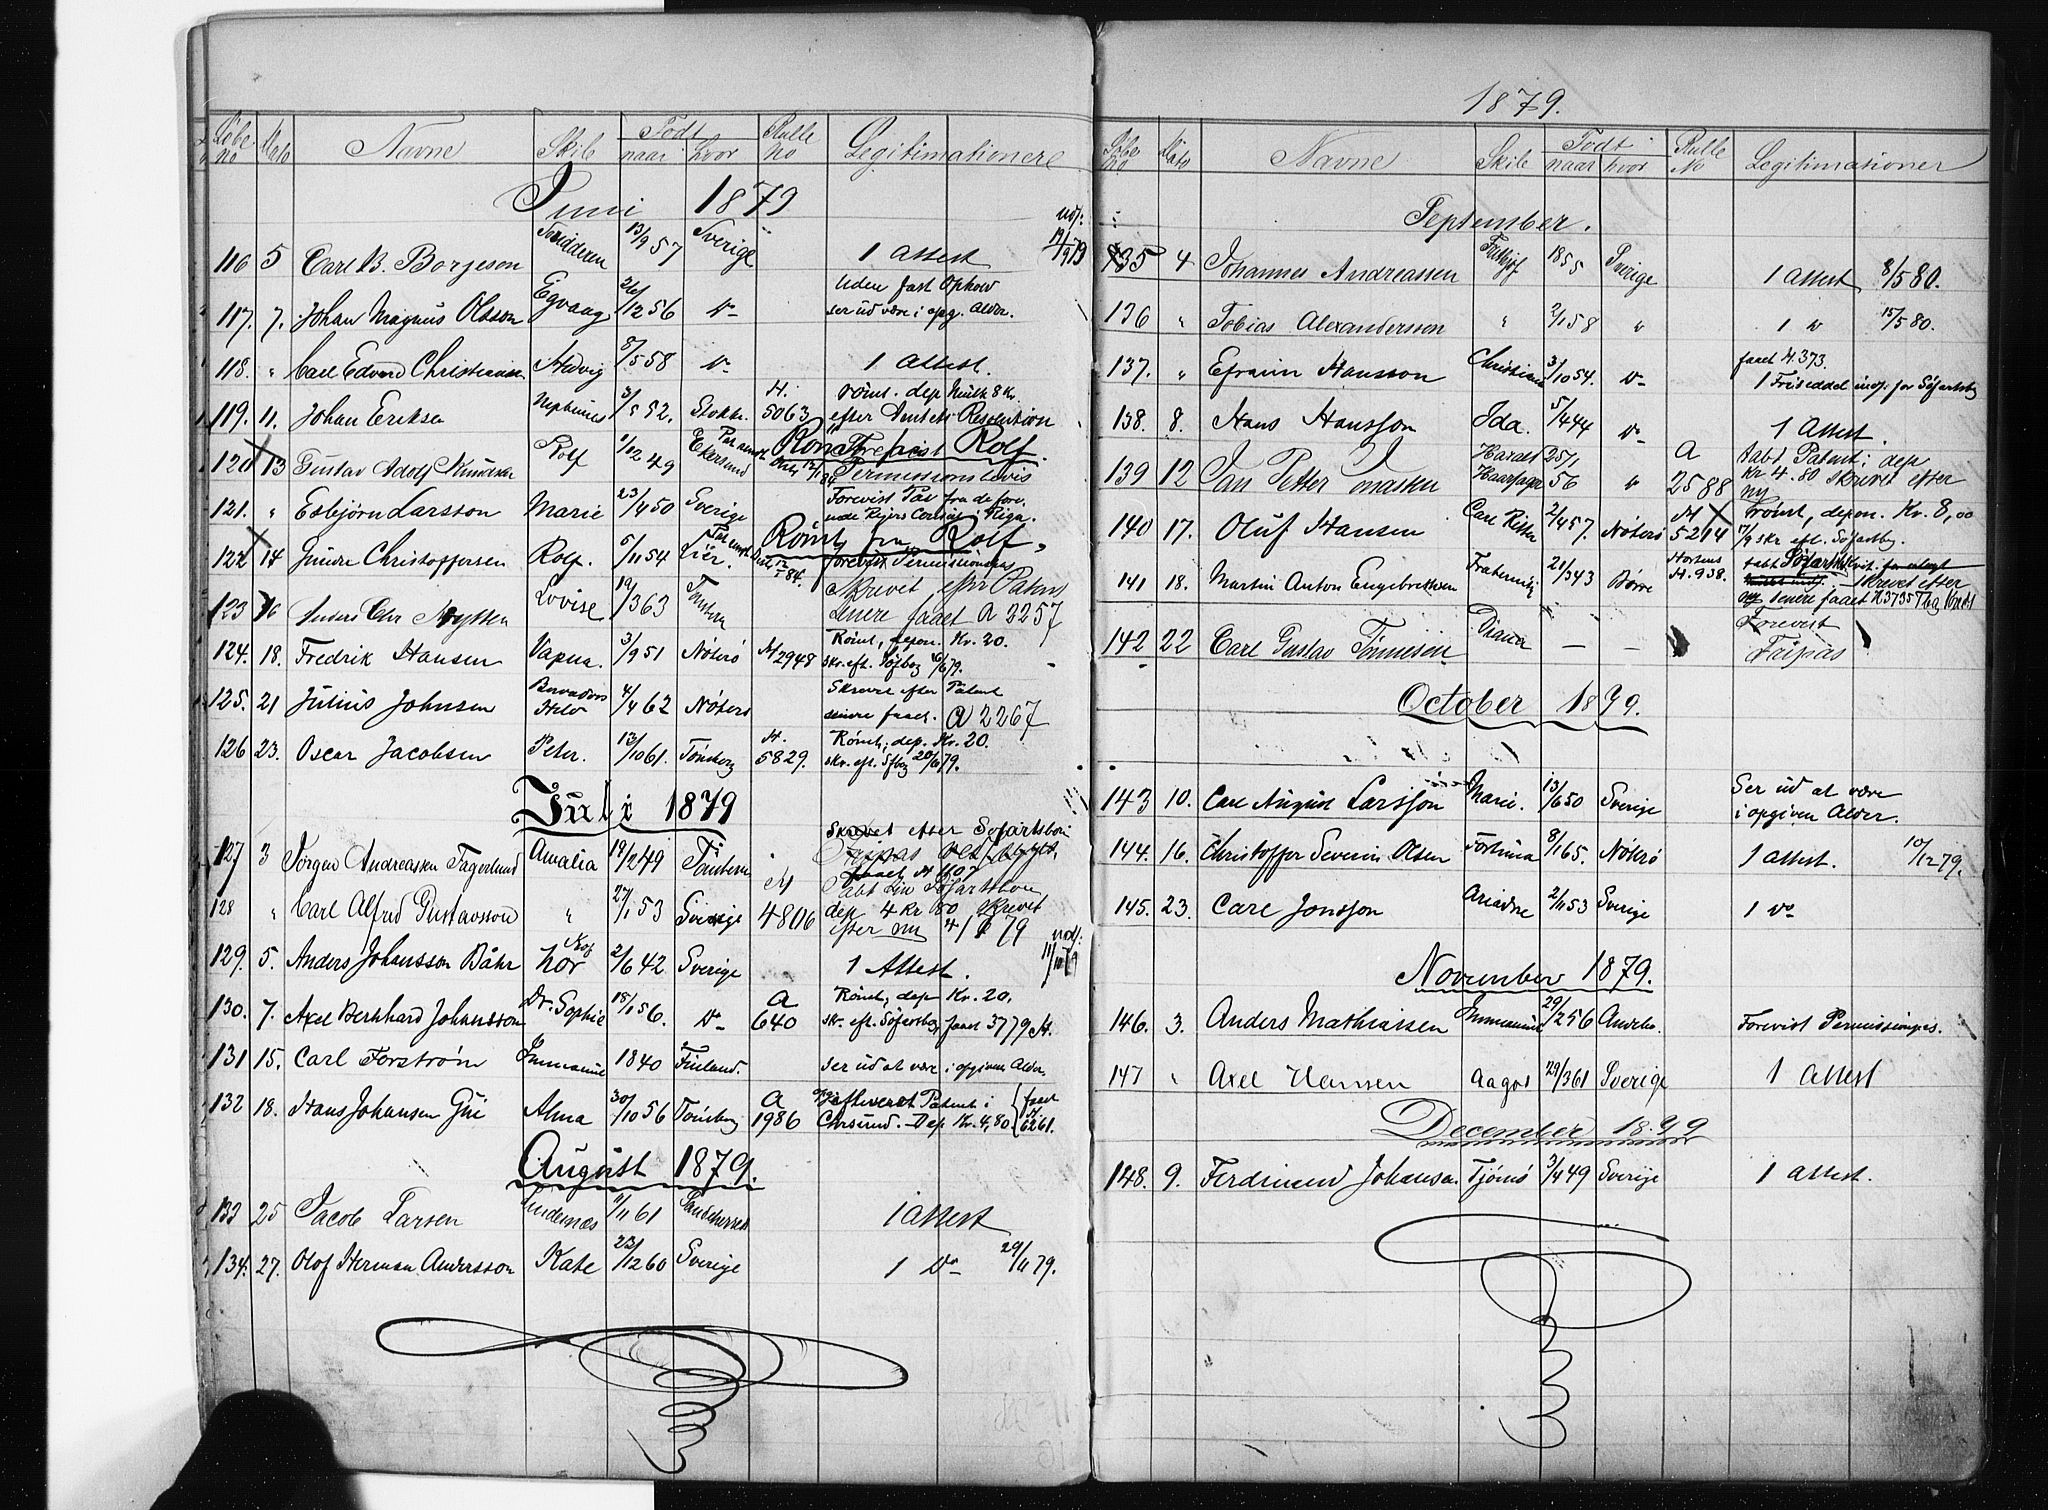 Löbe no | Dato | Navne | Skib | Födt naar | hvor | Rulle no | Legitimationer
Juni 1879
116 | 5 | Carl B. Borjeson | 13/9 57 | Sverige | 1 Attest | 19/9 79
117. | 7. | Johan Magnus Olsson | Egvaag | 26/12 56 | Do | Uden fast Ophold
ser ud være i opg. Alder.
118. | " | Carl Edvard Christiansen | Hedvig | 8/5 58 | Do | 1 Attest.
119. | 11. | Johan Eriksen | Neptunus | 3/5 52. | Stokh. | H. 5063 | römt. dep Mulk 8 Kr.
efter Amtets Resolution
120 | 13 | Gustav Adolf Knudsen | Rolf | 1/12 49 | Ekersund | Römt fra Rolf.
Permissionsbevis
121. | " | Esbjörn Larsson | Marie | 23/4 50 | Sverige | Forevist Pas fra de fore.
nde Rigers Consul i Riga.
122 | 14 | Gundre Christoffersen | Rolf. | 5/11 54 | Lier. | Römt fra Rolf.
forevist Permissionspas
123 | 16 | Anders Chr Nyssen | Lovise | 19/3 63 | Tönsberg | Skrevet efter Patent
senere faaet A 2257
124. | 18. | Fredrik Hansen | Vapna. | 3/9 51 | Nöterö | H 2948 | Römt, depon. Kr. 20.
skr. eft. Söfbog 16/6 79.
125. | 21 | Julius Johnsen | 4/4 62 | Nöterö | Skrevet efter Patent
senere faaet. A 2267
126 | 23. | Oscar Jacobsen | Peter. | 13/10 61. | Tönsberg | H. 5829. | Römt, dep. Kr. 20.
skr. eft. Söfbog 20/6 79.
Juli 1879
127 | 3 | Jörgen Andreassen Fagerlund | Amalia | 19/2 49 | Tönsberg | Skrevet efter Sofartsbon
Fripas
faaet H 1107
128 | " | Carl Alfred Gustavsson | " | 27/1 53 | Sverige | H 4806 | Tabt sin Söfartsbon
dep 4 Kr 80 skrevet
efter nu 4/7 79
129. | 5. | Anders Johansson Båhr | Thor | 2/6 42 | Sverige | 1 Attest. | 11/10 79
130. | 7. | Axel Bernhard Johansson | Dr. Sophie | 18/1 56. | Do | A 640 | Römt, dep Kr. 20.
sk. eft. Söfartsbog faaet 3779 H.
131 | 15. | Carl Forströn | Immanuel | 1840 | Finland. | ser ud at være i opgiven Alder.
132 | 18. | Hans Johansen Gui | Alma | 30/10 56 | Tönsberg | A 1986 | Patent i
Chrsund. Dep Kr. 4,80. | faaet H 6261.
August 1879.
133 | 25 | Jacob Larsen | Lindesnæs | 11/11 61 | Sandeherred | 1 Attest
134. | 27. | Olof Herman Andersson | Kate | 23/12 60 | Sverige | 1 Do | 29/11 79.
1879.
Löbe no | Dato | Navne | Skib | Födt naar | hvor | Rulle No | Legitimationer
September.
135 | 4 | Johannes Andreassen | Frithjof | 1855 | Sverige | 1 Attest | 8/5 80.
136 | " | Tobias Alexandersson | " | 2/1 58 | " | 1 Do | 15/5 80.
137. | " | Efraim Hansson | Christiania | 3/10 54. | Do | faaet H. 373.
1 Friseddel indf. for Söfartsbog
138. | 8. | Hans Hansson | Ida. | 5/4 44 | Do | 1 Attest.
139 | 12 | Jan Petter Jonassen | Harald Haarfager | 25/1 56 | " | A 2588 | tabt Patent; dep
Kr 4.80 skrevet efter
ny
140 | 17. | Oluf Hansen | Carl Ritter | 2/4 57. | Nöterö | H 5214 | Römt, depon. Kr. 8,00
17/9 skr eft. Söfartsbog.
141 | 18. | Martin Anton Engebretsen | Fraternitas | 21/3 43 | Börre | Hortens H. 938. | tabt Söfartsbog
skrevet efter
ny senere faaet H 3735
142 | 22 | Carl Gustav Tönnesen | Diana | — | — | Forevist
Fripas
October 1879.
143 | 10. | Carl August Larsson | Marie. | 13/6 50 | Sverige | Ser ud at være
i opgiven Alder.
144. | 16. | Christoffer Severin Olsen | Fortuna | 8/1 65. | Nöterö | 1 Attest. | 10/12 79.
145. | 23. | Carl Jonsson | Ariadne | 2/11 53 | Sverige | 1 Do
November 1879.
146. | 3. | Anders Mathiassen | Immanuel | 29/2 56 | Forevist Permissionspas.
147 | " | Axel Hansen | Aagot | 29/3 61 | Sverige | 1 Attest
December 1879
148. | 9. | Ferdinand Johansen | Tjömö | 3/4 49 | Sverige | 1 Attest.